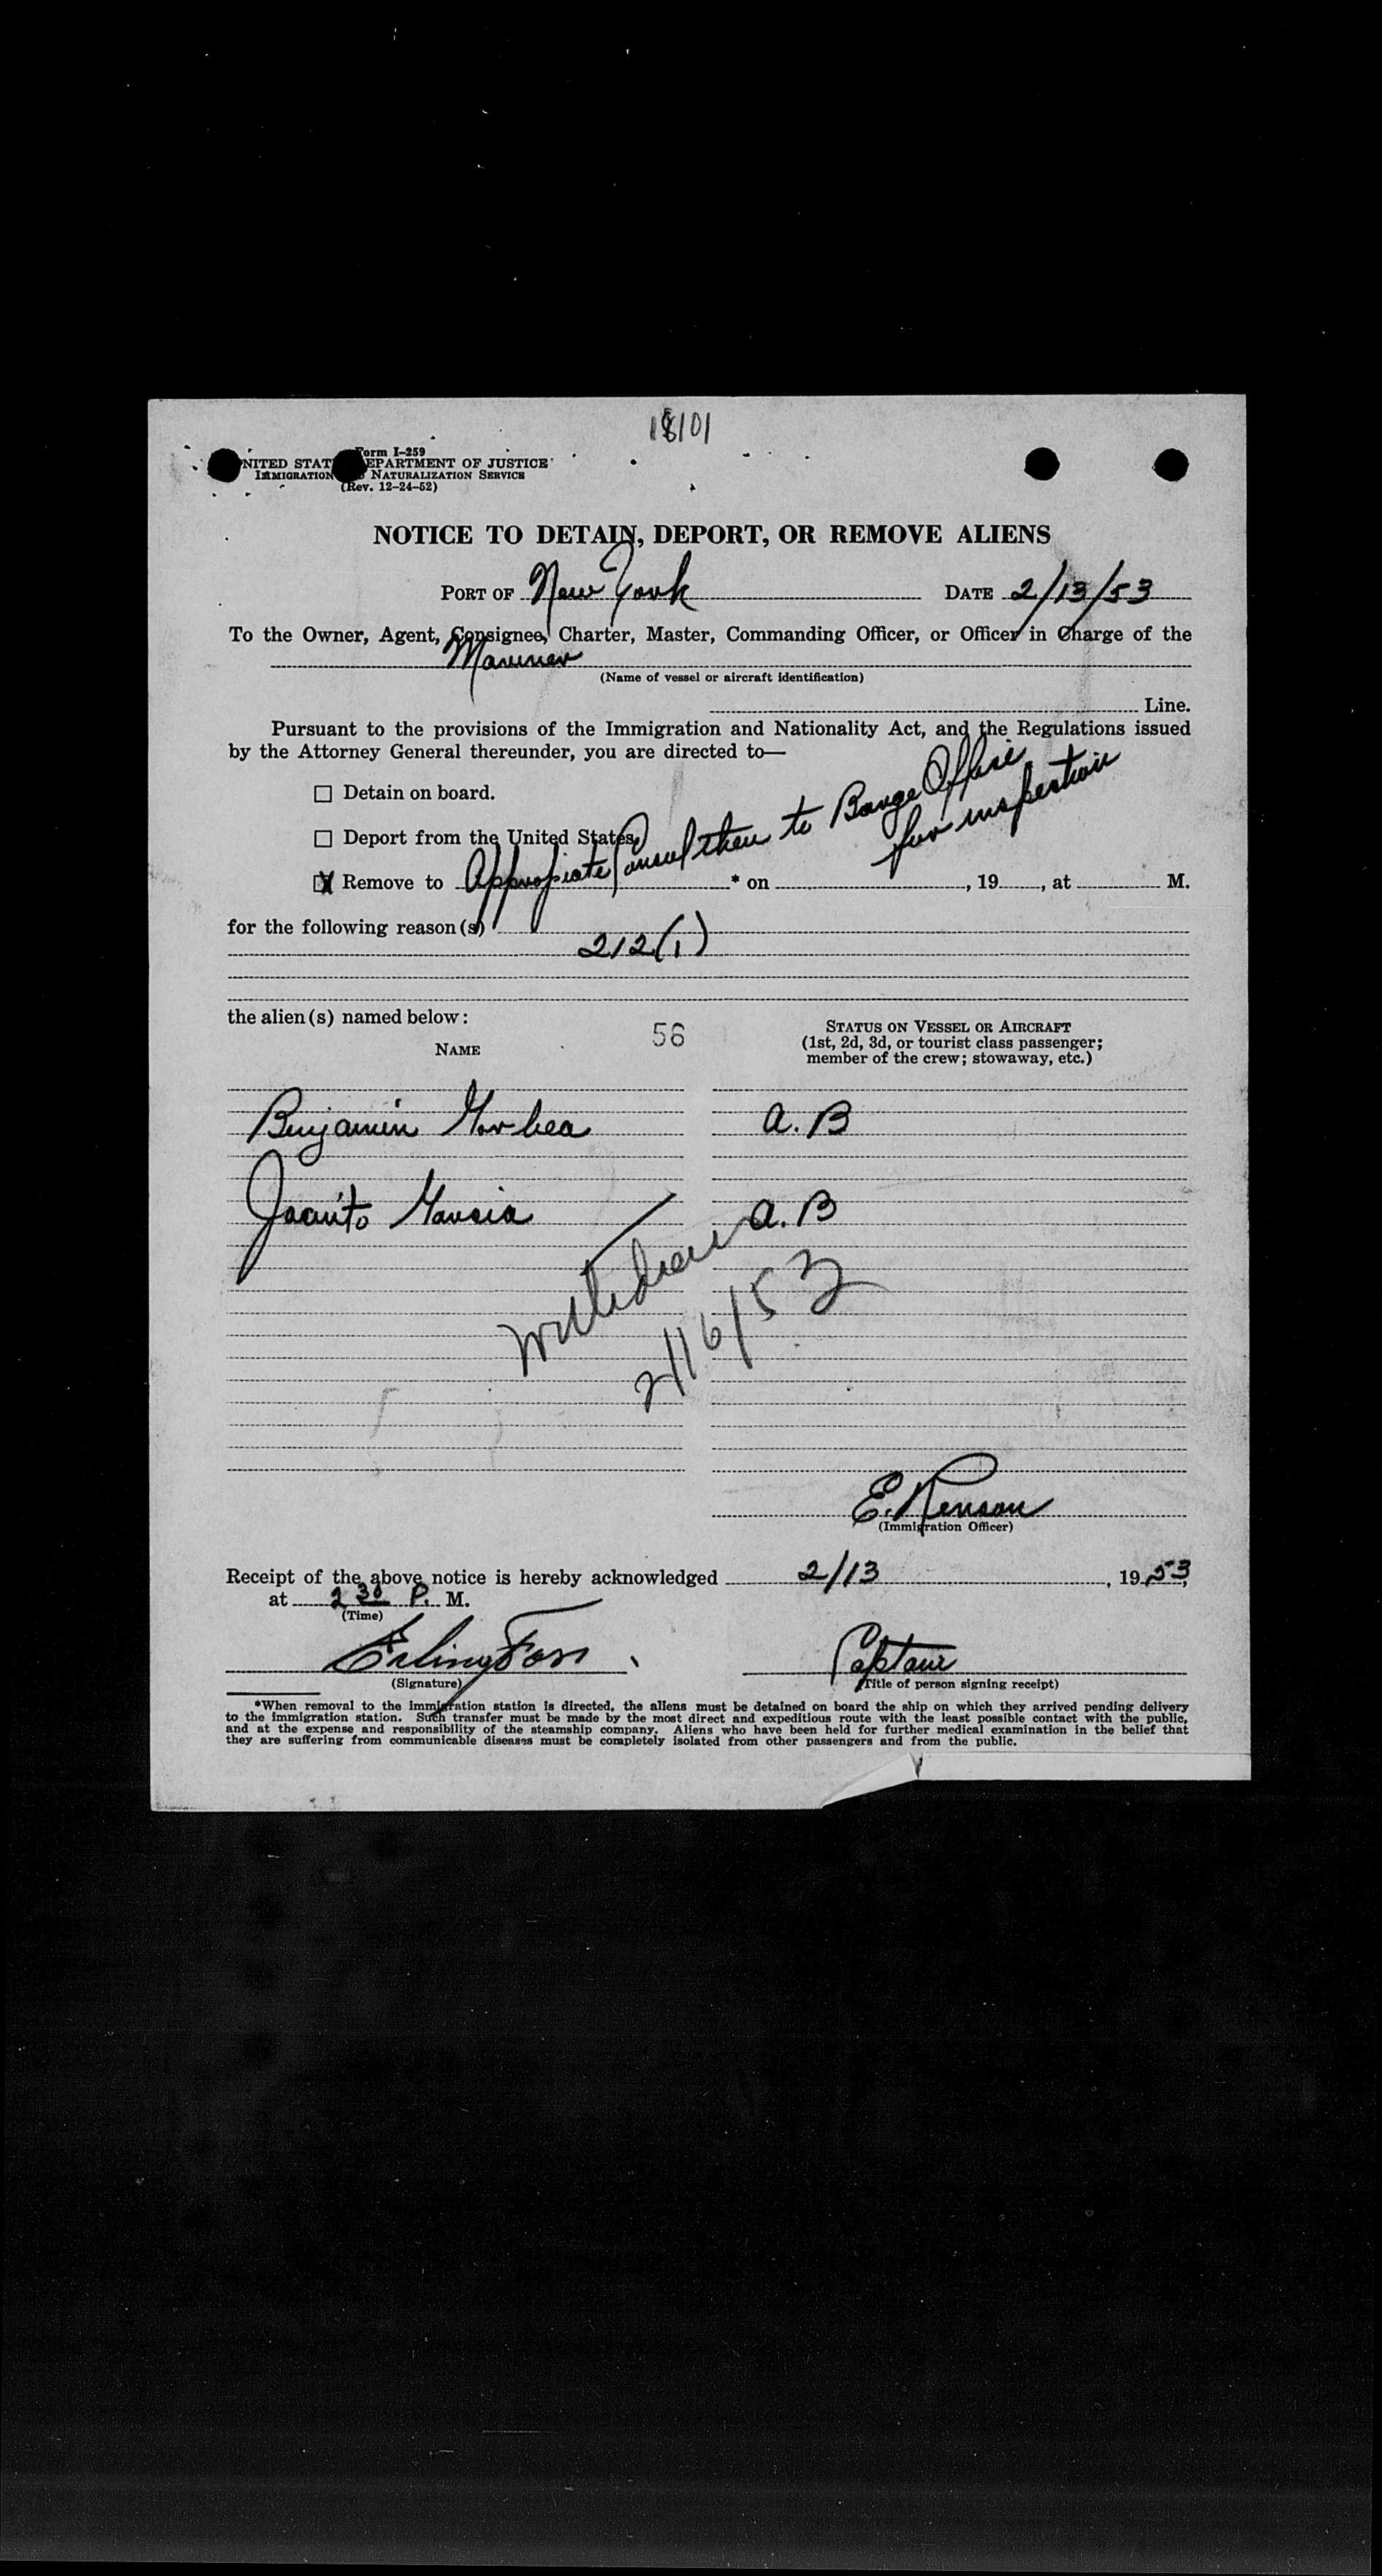 18101
Form I-259
UNITED STATES DEPARTMENT OF JUSTICE
IMMIGRATION AND NATURALIZATION SERVICE
(Rev. 12-24-52)
NOTICE TO DETAIN, DEPORT, OR REMOVE ALIENS
PORT OF New York DATE 2/13/53
To the Owner, Agent, Consignee, Charter, Master, Commanding Officer, or Officer in Charge of the
Mariner
(Name of vessel or aircraft identification)
Line.
Pursuant to the provisions of the Immigration and Nationality Act, and the Regulations issued
by the Attorney General thereunder, you are directed to—
☐ Detain on board.
☐ Deport from the United States.
☒ Remove to Appropiate Consul then to Barge Office for inspection * on , 19 , at M.
for the following reason(s)
212(1)
the alien(s) named below:
56
NAME
STATUS ON VESSEL OR AIRCRAFT
(1st, 2d, 3d, or tourist class passenger;
member of the crew; stowaway, etc.)
Benjamin A.B
Jacinto Garcia A.B
Withdrawn
2/16/53
E. Renson
(Immigration Officer)
Receipt of the above notice is hereby acknowledged 2/13, 1953,
at 2 30 P. M.
(Time)
Erling Foss Captain
(Signature) (Title of person signing receipt)
*When removal to the immigration station is directed, the aliens must be detained on board the ship on which they arrived pending delivery
to the immigration station. Such transfer must be made by the most direct and expeditious route with the least possible contact with the public,
and at the expense and responsibility of the steamship company. Aliens who have been held for further medical examination in the belief that
they are suffering from communicable diseases must be completely isolated from other passengers and from the public.